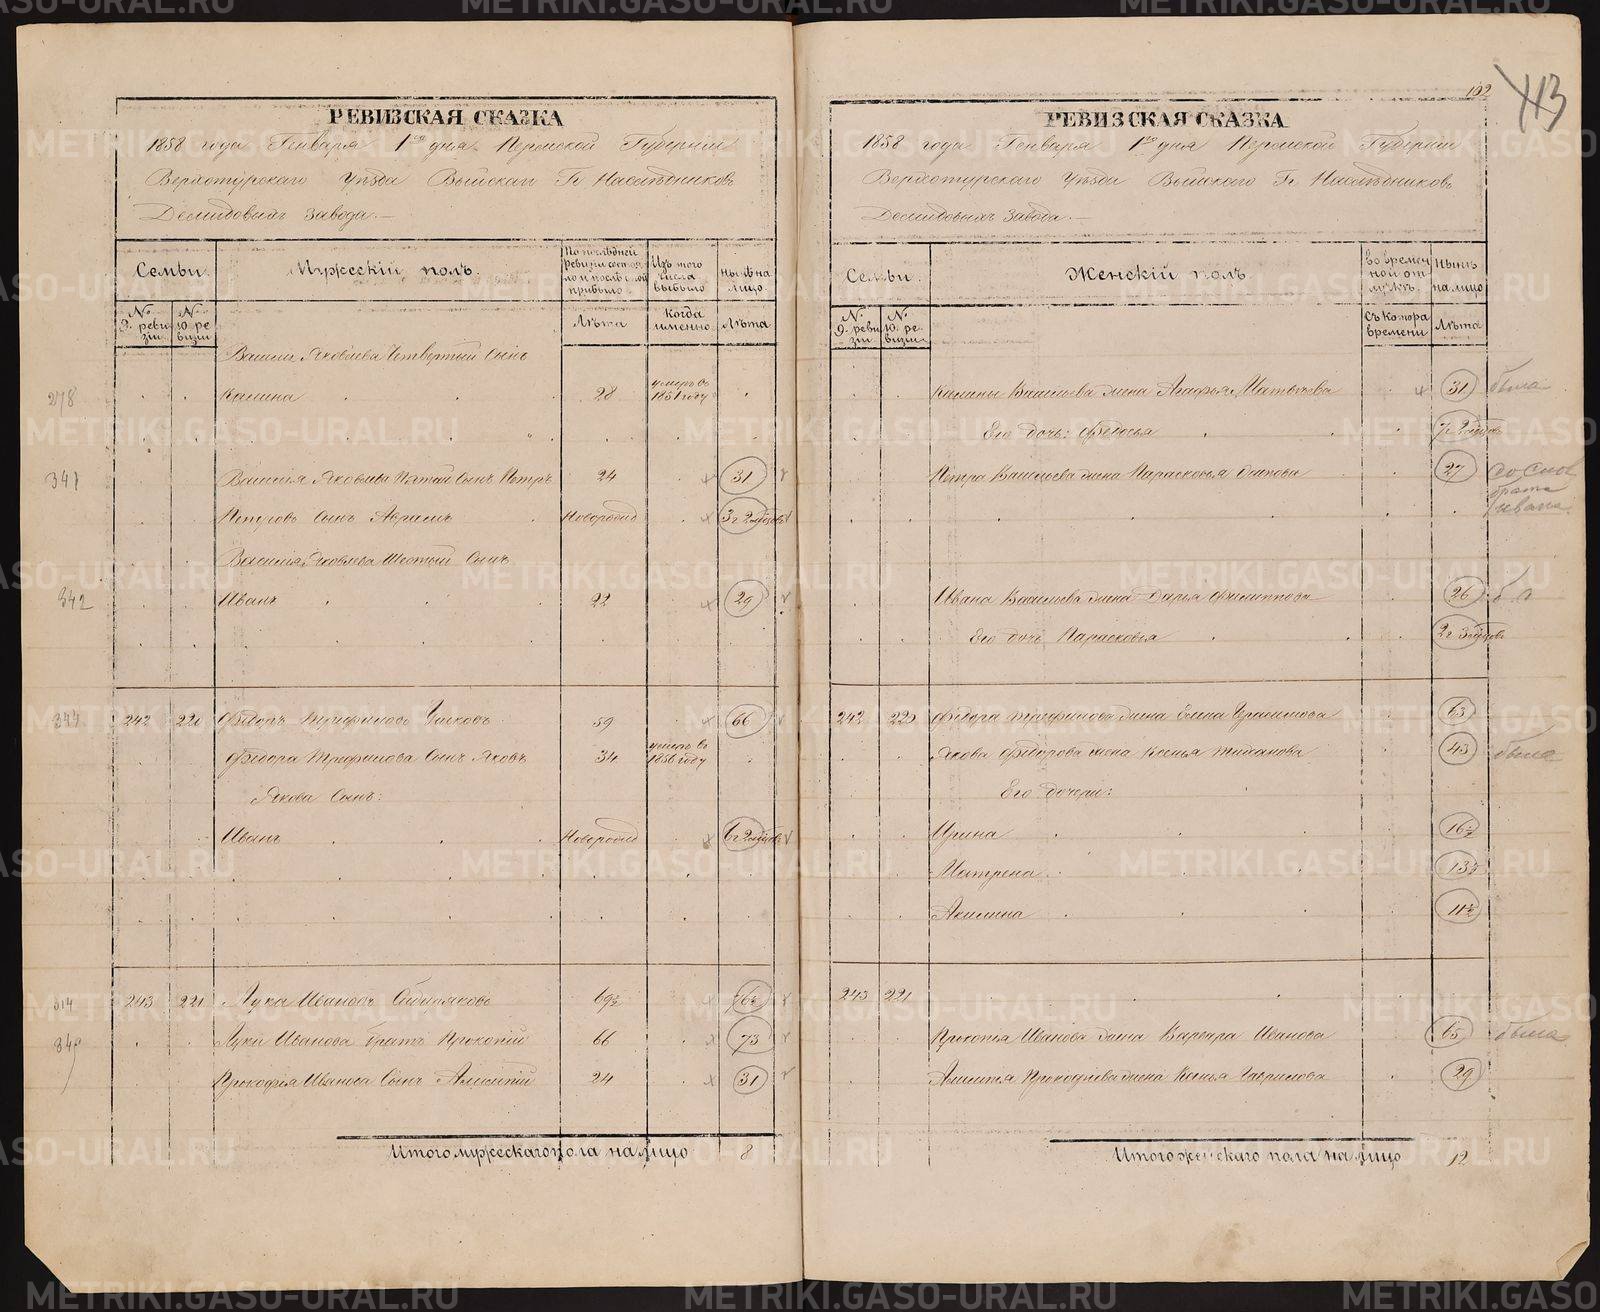 РЕВИЗСКАЯ СКАЗКА
1858 года Генваря 1го дня Пермской Губернии
Верхотурскаго Уѣзда Выйскаго Гг Наслѣдниковъ
Демидовыхъ завода.
Семьи.
Мужескій полъ.
По послѣдней ревизіи состояло и послѣ оной прибыло.
Изъ того числа выбыло
нынѣ на лицо.
№ 9. ревизіи
№ 10. ревизіи
Лѣта
Когда именно
Лѣта
Василія Яковлева Четвертый Сынъ
278 Калина 28 умеръ въ 1851 году
341 Василія Яковлева Пятый Сынъ Петръ 24 31
Петровъ Сынъ Новорожд 3 г 2 мѣсяцовъ
Василія Яковлева Шестый Сынъ
342 Иванъ 22 29
242 220 Ѳедоръ Трифоновъ 59 66
Ѳедора Трифонова Сынъ Яковъ 34 умеръ въ 1856 году
Якова Сынъ:
Иванъ Новорожд 6 г 2 мѣсяцовъ
314 243 221 Лука Ивановъ Сибиряковъ 69½ 76½
Луки Иванова братъ Прокопій 66 73
Прокофія Иванова Сынъ 24 31
Итого мужескаго пола на лицо 8
192
113
РЕВИЗСКАЯ СКАЗКА
1858 года Генваря 1го дня Пермской Губерніи
Верхотурскаго Уѣзда Выйскаго Гг Наслѣдниковъ
Демидовыхъ завода.
Семьи.
Женскій полъ.
Во временной отлучкѣ.
Нынѣ на лицо
№ 9. ревизіи
№ 10. ревизіи
Съ котора времени
Лѣта
Калины Васильева жена Агафья Матвѣева 31 была
Его дочь: Ѳедосья 7 г 2 мѣсяцовъ
Петра Васильева жена Парасковья Осипова 27 со слов
брата
Ивана
Ивана Васильева жена Дарья Филиппова 26
Его дочь Парасковья 2 г 3 мѣсяцовъ
242 220 Ѳедора Трифонова жена Елена Герасимова 63
Якова Ѳедорова жена Ксенья 43 была
Его дочери:
Ирина 16½
Матрена 13½
Акилина 11½
243 221
Прокопья Иванова жена Варвара Иванова 65 была
Прокофьева жена Ксенья Гаврилова 29
Итого женскаго пола на лицо 12
METRIKI.GASO-URAL.RU